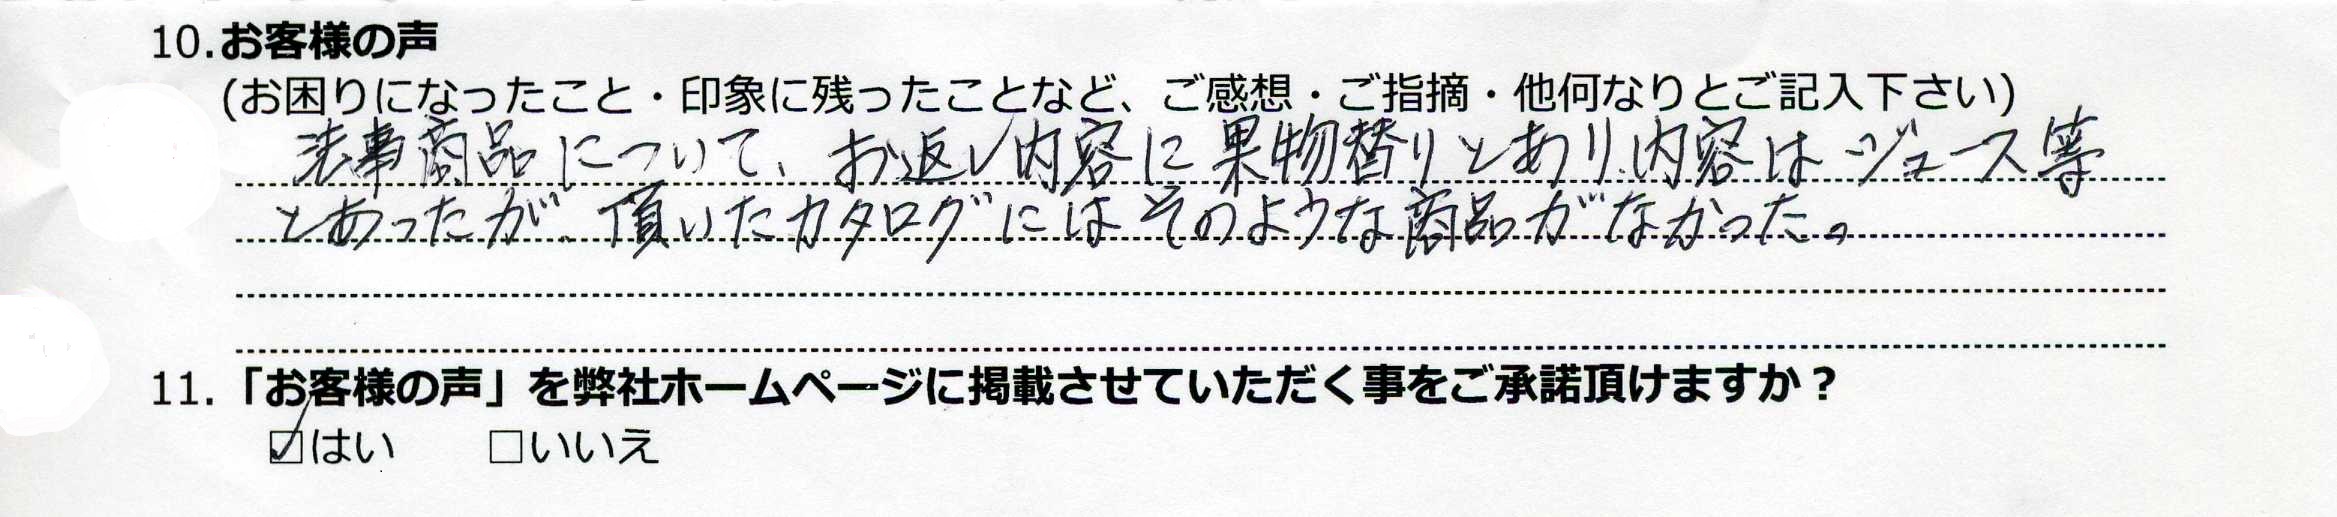 10.お客様の声
(お困りになったこと・印象に残ったことなど、ご感想・ご指摘・他何なりとご記入下さい)
法事商品について、お返し内容に果物替りとあり、内容はジュース等
とあったが、頂いたカタログにはそのような商品がなかった。
11.「お客様の声」を弊社ホームページに掲載させていただく事をご承諾頂けますか？
☑はい □いいえ